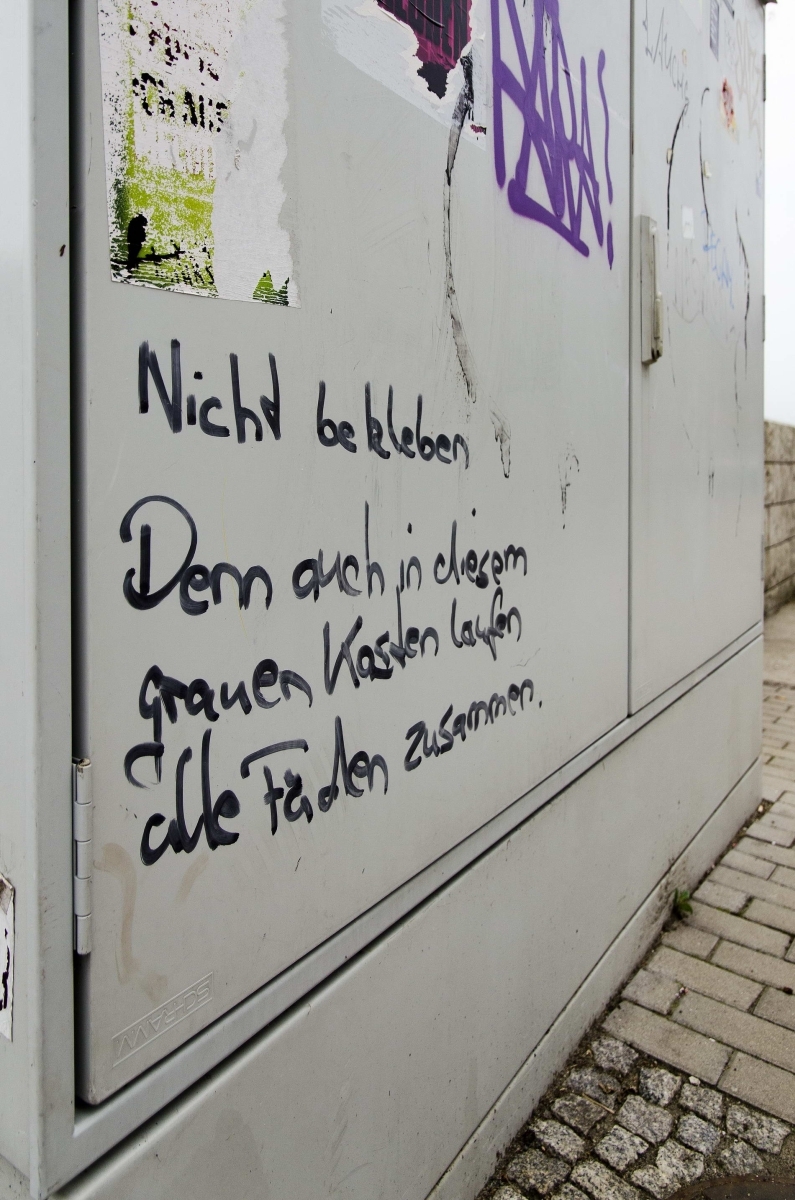 Nicht bekleben
Denn auch in diesem
grauen Kasten laufen
alle Fäden zusammen.
SCHRAVV